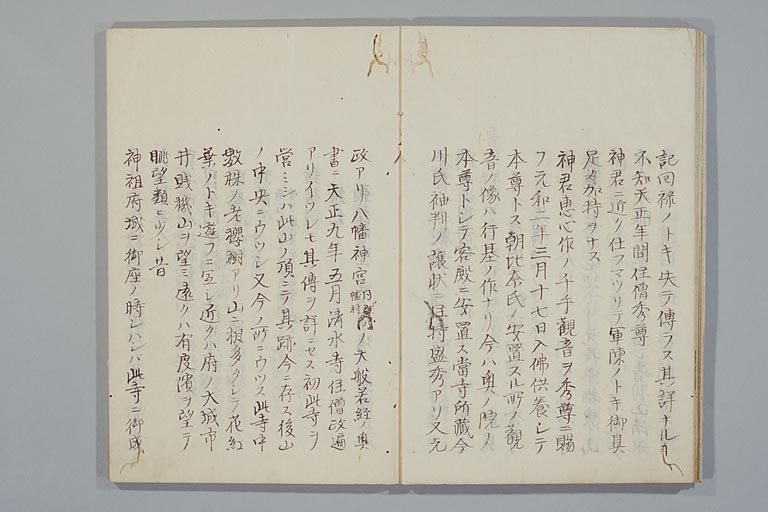 記回禄ノトキ失テ傳フス其詳ナルカ
不知天正年間住僧秀尊
神君ニ近ク仕フマツリテ軍陳ノトキ御具
足ノ加持ヲナス
神君恵心作ノ千手觀音ヲ秀尊ニ賜
フ元和二年三月十七日入佛供養シテ
本尊トス朝比奈氏ノ安置スル所ノ觀
音ノ像ハ行基ノ作ナリ今ハ奥ノ院ノ
本尊トシテ客殿ニ安置ス當寺所藏今
川氏袖判ノ譲状ニ住持盛秀アリ又元
政アリ八幡神宮 ノ大般若経ノ奥
書ニ天正九年五月清水寺住僧政遍
アリイツレモ其傳ヲ詳ニセス初此寺ヲ
営ミシハ此山ノ頂ニテ其跡今ニ存ス後山
ノ中央ニウツシ又今ノ所ニウツス此寺中
數株ノ老櫻樹アリ山ニ楓多クシテ花紅
葉ノトキ遊フニ宜シ近クハ府ノ大城市
井賎機山ヲ望ミ遠クハ有度濱ヲ望テ
眺望類ヒ少シ昔
神祖府城ニ御座ノ時シハシハ此寺ニ御成